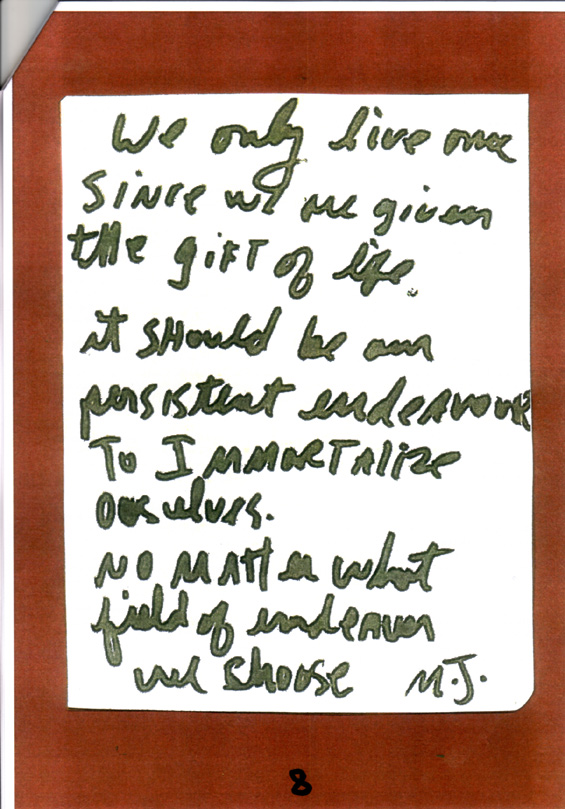 We only live once
Since we are given
the GiFT of life
it SHould be our
persistent endeavour
To IMMORTAlize
ourselves.
NO MATTer what
field of endeavor
we choose M.J.
8